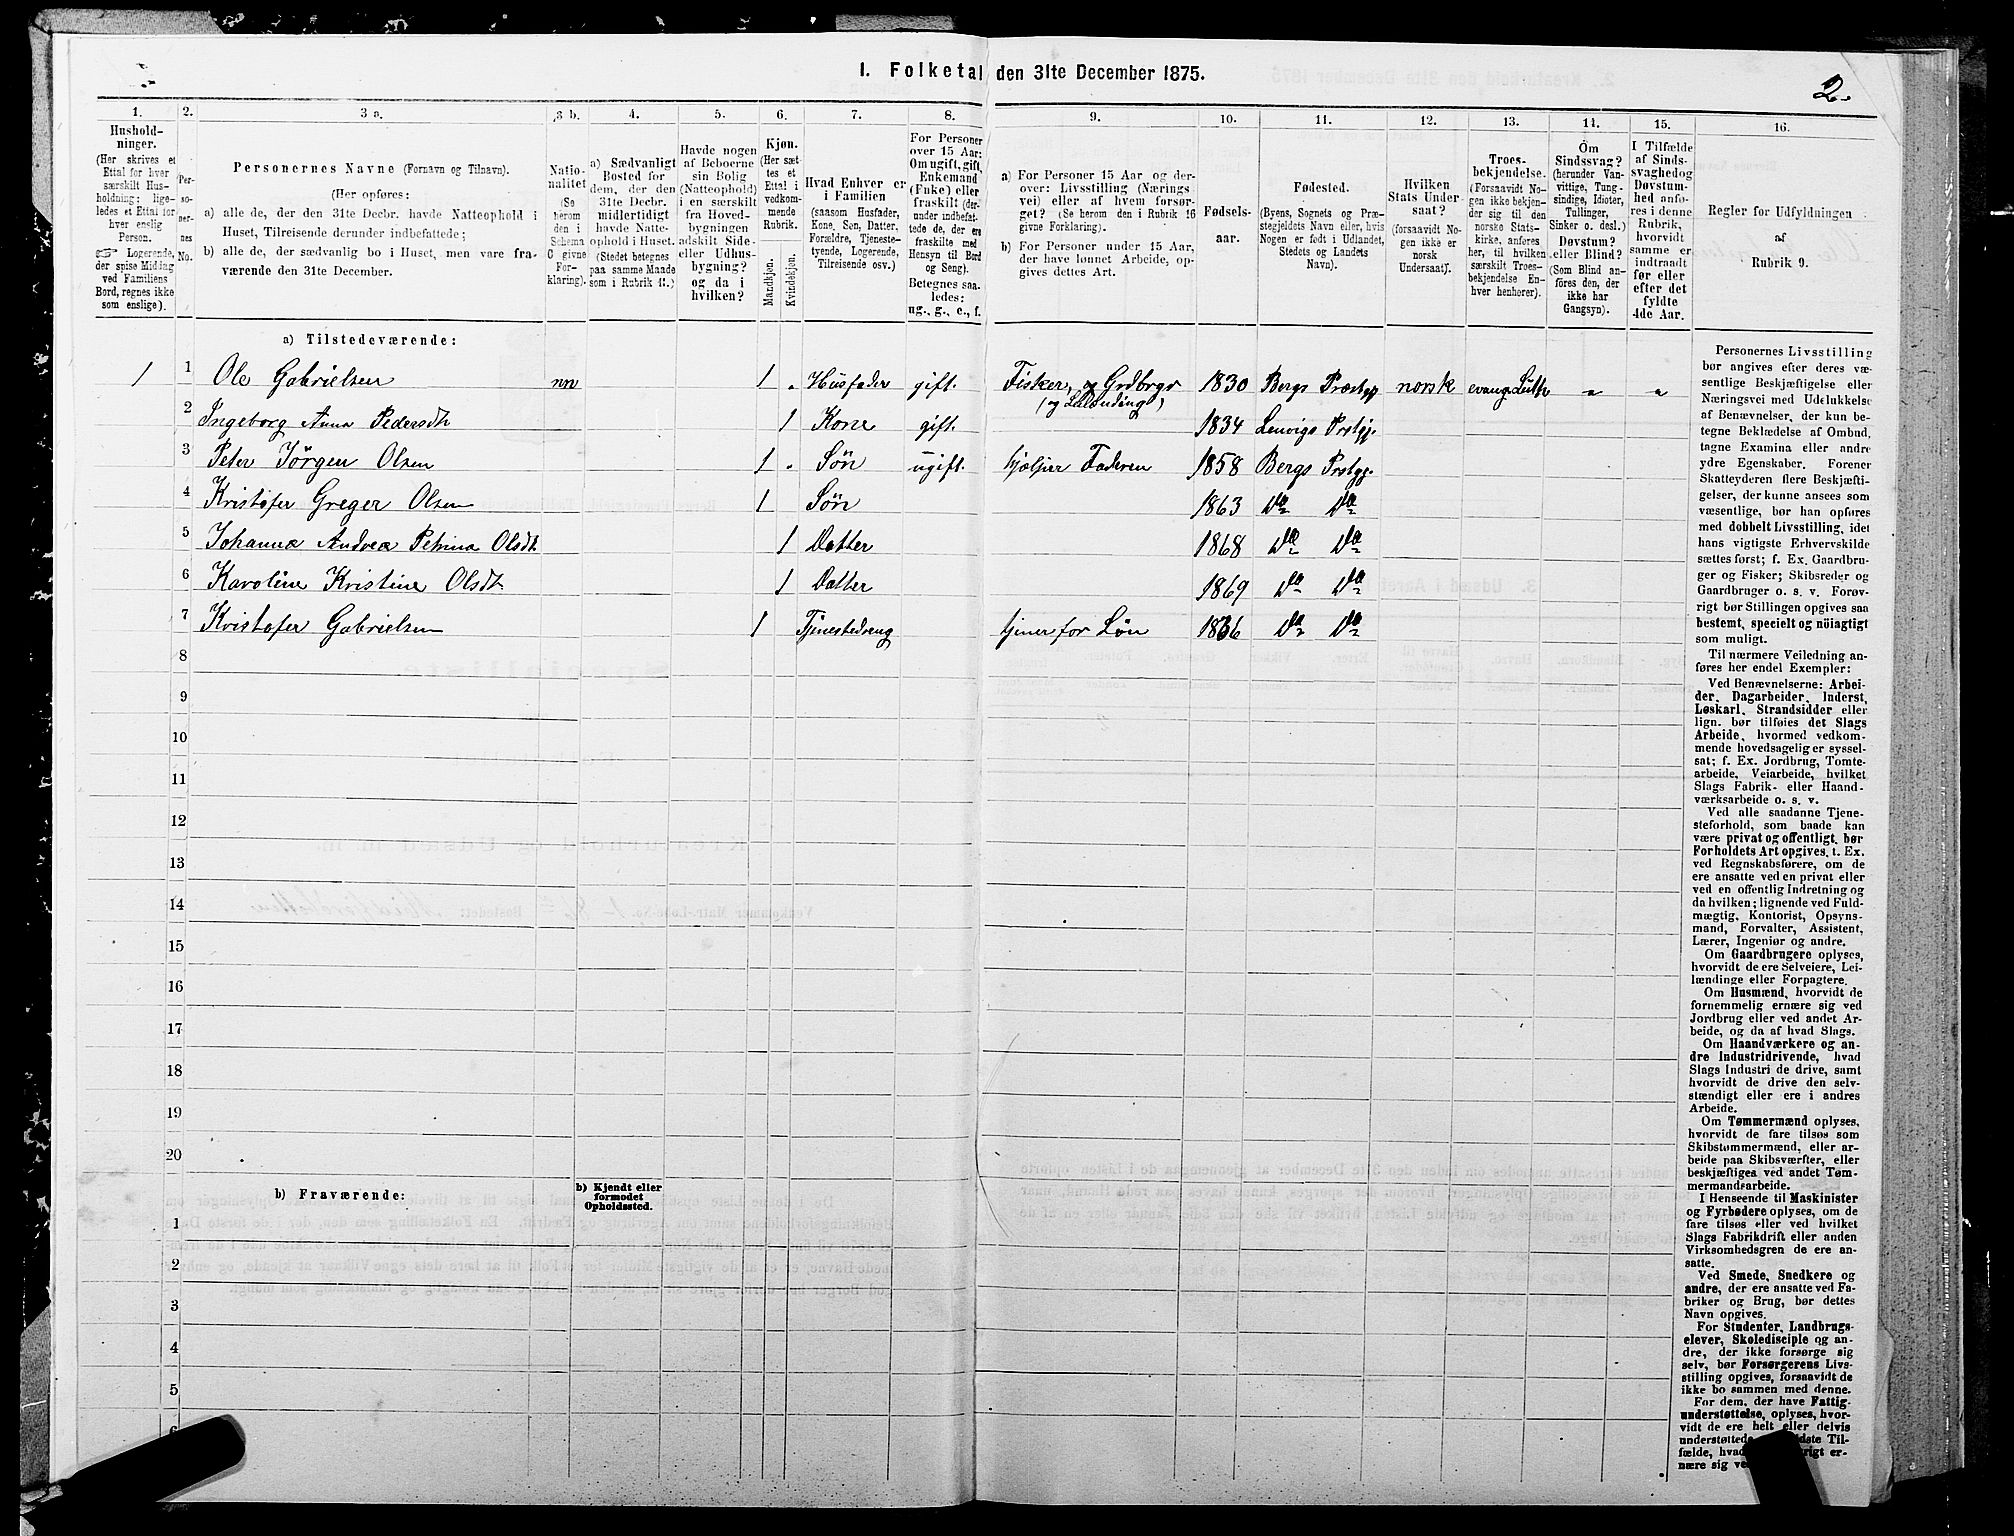 1. Folketal den 31te December 1875.
2.
1.
Hushold-
ninger.
(Her skrives et
Ettal for hver
særskilt Hus-
holdning; lige-
ledes et Ettal for
hver enslig
Person.
☞ Logerende,
der spise Middag
ved Familiens
Bord, regnes ikke
som enslige).
2.
Per-
so-
ner-
nes
No.
3 a.
Personernes Navne (Fornavn og Tilnavn).
(Her opføres:
a) alle de, der den 31te Decbr. havde Natteophold i
Huset, Tilreisende derunder indbefattede;
b) alle de, der sædvanlig bo i Huset, men vare fra-
værende den 31te December.
3 b.
Natio-
nalitet
(Se
herom
den i
Schema
C givne
For-
klaring).
4.
a) Sædvanligt
Bosted for
dem, der den
31te Decbr.
midlertidigt
havde Natte-
ophold i Huset.
(Stedet betegnes
paa samme Maade
som i Rubrik 11.)
5.
Havde nogen
af Beboerne
sin Bolig
(Natteophold)
i en særskilt
fra Hoved-
bygningen
adskilt Side-
eller Udhus-
bygning?
og da i
hvilken?
6.
Kjøn.
(Her sæt-
tes et
Ettal i
vedkom-
mende
Rubrik.
Mandkjøn.
Kvindekjøn.
7.
Hvad Enhver er
i Familien
(saasom Husfader,
Kone, Søn, Datter,
Forældre, Tjeneste-
tyende, Logerende,
Tilreisende osv.)
8.
For Personer
over 15 Aar:
Om ugift, gift,
Enkemand
(Enke) eller
fraskilt (der-
under indbefat-
tede de, der ere
fraskilte med
Hensyn til Bord
og Seng).
Betegnes saa-
ledes:
ug., g., e., f.
9.
a) For Personer 15 Aar og der-
over: Livsstilling (Nærings
vei) eller af hvem forsør-
get? (Se herom den i Rubrik 16
givne Forklaring).
b) For Personer under 15 Aar,
der have lønnet Arbeide, op-
gives dettes Art.
10.
Fødsels-
aar.
11.
Fødested.
(Byens, Sognets og Præ-
stegjeldets Navn eller, hvis
Nogen er født i Udlandet,
Stedets og Landets
Navn).
12.
Hvilken
Stats Under-
saat?
(forsaavidt No-
gen ikke er
norsk
Undersaat).
13.
Troes-
bekjendelse.
(Forsaavidt No-
gen ikke bekjen-
der sig til den
norske Stats-
kirke, anføres
her, til hvilken
særskilt Troes-
bekjendelse En-
hver henhører).
14.
Om
Sindssvag?
(herunder Van-
vittige, Tung-
sindige, Idioter,
Tullinger,
Sinker o. desl.)
Døvstum?
eller Blind?
(Som Blind an-
føres den, der
ikke har
Gangsyn).
15.
I Tilfælde
af Sinds-
svaghed og
Døvstum-
hed anfø-
res i denne
Rubrik,
hvorvidt
samme er
indtraadt
før eller
efter det
fyldte
4de Aar.
16.
Regler for Udfyldningen
af
Rubrik 9.
a) Tilstedeværende:
1 1 Ole Gabrielsen nn 1 . Husfader gift. Fisker, og Grdbrgr 1830 Bergs Præstgj norsk evang. Luth
2 Ingeborg Anna Pedersdt 1 Kone gift. 1834 Lenvigs Prstgj.
3 Peter Jörgen Olsen 1 . Sön ugift. hjælper Faderen 1858 Bergs Prstgj.
4 Kristofer Greger Olsen 1 Sön 1863 Do Do
5 Johanna Andrea Petrina Olsdt. 1 Datter 1868 Do Do
6 Karoline Kristine Olsdt. 1 Datter 1869 Do Do
7 Kristofer Gabrielsen 1 Tjenestedreng tjener for Lön Do Do
8
9
10
11
12
13
14
15
16
17
18
19
20
b) Fraværende:
b) Kjendt eller
formodet
Opholdssted.
1
2
3
4
5
6
Personernes Livsstilling
bør angives efter deres væ-
sentlige Beskjæftigelse eller
Næringsvei med Udelukkelse
af Benævnelser, der kun be-
tegne Beklædelse af Ombud,
tagne Examina eller andre
ydre Egenskaber. Forener
Skatteyderen flere Beskjæfti-
gelser, der kunne ansees som
væsentlige, bør han opføres
med dobbelt Livsstilling, idet
hans vigtigste Erhvervskilde
sættes først; f. Ex. Gaardbru-
ger og Fisker; Skibsreder og
Gaardbruger o. s. v. Forøv-
rigt bør Stillingen opgives saa
bestemt, specielt og nöiagtigt
som muligt.
Til nærmere Veiledning an-
føres her endel Exempler:
Ved Benævnelserne: Arbei-
der, Dagarbeider, Inderst,
Løskarl, Strandsidder eller
lign. bør tilføies det Slags
Arbeide, hvormed vedkom-
mende hovedsagelig er syssel-
sat; f. Ex. Jordbrug, Tomte-
arbeide, Veiarbeide, hvilket
Slags Fabrik- eller Haand-
værksarbeide o. s. v.
Ved alle saadanne Tjene-
steforhold, som baade kan
være privat og offentligt, bør
Forholdets Art opgives, t. Ex.
ved Regnskabsførere, om de
ere ansatte ved en privat eller
ved en offentlig Indretning og
da hvilken; lignende ved Fuld-
mægtig, Kontorist, Opsyns-
mand, Forvalter, Assistent,
Lærer, Ingeniør og andre.
Om Gaardbrugere oplyses,
hvorvidt de ere Selveiere, Lei-
lændinge eller Forpagtere.
Om Husmænd, hvorvidt de
fornemmelig ernære sig ved
Jordbrug eller ved andet Ar-
beide, og da af hvad Slags.
Om Haandværkere og an-
dre Industridrivende, hvad
Slags Industri de drive, samt
hvorvidt de drive den selv-
stændigt eller ere i andres
Arbeide.
Om Tømmermænd oplyses,
hvorvidt de fare tilsøs som
Skibstømmermænd, eller ar-
beide paa Skibsværfter, eller
beskjæftiges ved andet Tøm-
mermandsarbeide.
I Henseende til Maskinister
og Fyrbødere oplyses, om de
fare tilsøs eller ved hvilket
Slags Fabrikdrift eller anden
Virksomhedsgren de ere an-
satte.
Ved Smede, Snedkere og
andre, der ere ansatte ved Fa-
briker og Brug, bør dettes
Navn opgives.
For Studenter, Landbrugs-
elever, Skoledisciple og an-
dre, der ikke forsørge sig
selv, bør Forsørgerens Livs-
stilling opgives, forsaavidt de
ikke bo sammen med denne.
For dem, der have Fattig-
understøttelse, oplyses, hvor-
vidt de ere helt eller delvis
understøttede